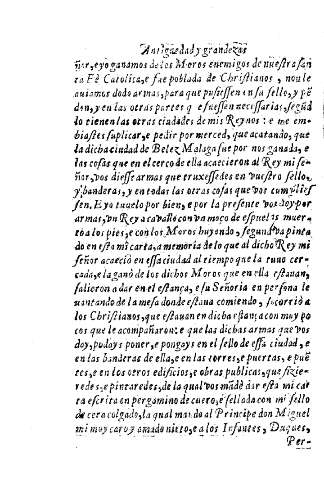 Antiguedad y grandezas
ñor, e yo ganamos de los Moros enemigos de nuestra san
ta Fè Catolica, e fue poblada de Christianos, non le
auiamos dado armas, para que pusiessen en su sello, y pẽ
don, y en las otras partes q̃ e fuessen necessarias, segũd
lo tienen las otras ciudades de mis Reynos: e me em-
biastes suplicar, e pedir por merced, que acatando, que
la dicha ciudad de Belez Malaga fue por nos ganada, e
las cosas que en el cerco de ella acaecieron al Rey mi se-
ñor, vos diesse armas que truxessedes en vuestro sello,
y banderas, y en todas las otras cosas que vos cumplies-
sen, E yo tuuelo por bien, e por la presente vos doy por
armas, vn Rey a cauallo con va moço de espuelas muer-
to a los pies, e con los Moros huyendo, segun va pinta
do en esta mi carta, a memoria de lo que al dicho Rey mi
señor acaeciò en essa ciudad al tiempo que la tuuo cer-
cada, e la ganò de los dichos Moros que en ella estauan,
salieron a dar en el estança, e su Señoria en persona le
uantando de la mesa donde estaua comiendo, socorriò a
los Christianos, que estauan en dicha estança con muy po
cos que le acompañaron: e que las dichas armas que vos
doy, podays poner, e pongays en el sello de essa ciudad, e
en las banderas de ella, e en las torres, e puertas, e puẽ
tes, e en los otros edificios, e obras publicas, que fizie-
redes, e pintaredes, de la qual vos mãdè dar esta mi car
ta escrita en pergamino de cuero, e sellada con mi sello
de cera colgado, la qual mando al Principe don Miguel
mi muy caro y amado nieto, e a los Infantes, Duques,
Per-